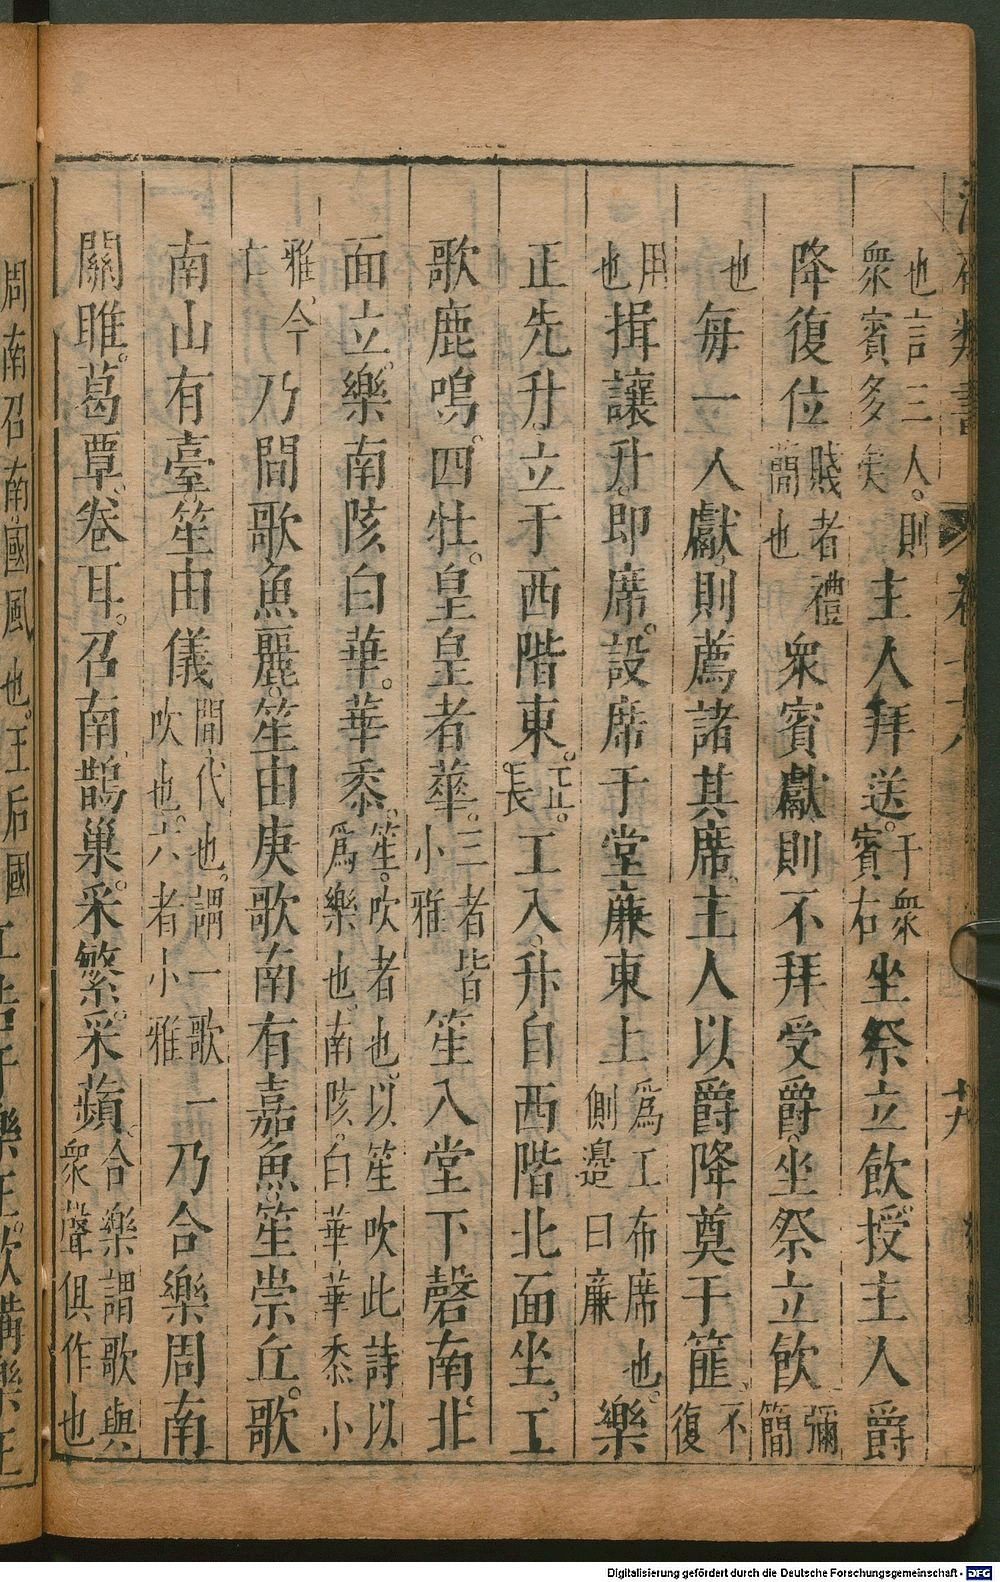 也言三人。則衆賓多矣主人拜送。于衆賓右坐祭立飲授主人爵
降復位賤者禮簡也衆賓獻則不拜受爵。坐祭立飲彌簡
也每一人獻。則薦諸其席。主人以爵降奠于篚。不復
用也揖讓升。即席。設席于堂廉東上爲工布席也。側邊曰廉樂
正先升。立于西階東。正。長工入。升自西階北面坐。工
歌鹿鳴。四牡。皇皇者華。三者皆小雅笙入堂下磬南。北
面立。樂南陔白華。華黍。笙。吹者也。以笙吹此詩以爲樂也。南陔。白華。華黍小
雅。今亡乃間歌魚麗。笙由庚歌南有嘉魚。笙崇丘。歌
南山有臺。笙由儀間。代也。謂一歌一吹也。六者小雅乃合樂周南
關雎。葛覃。卷耳。召南。鵲巢。采蘩。采蘋。合樂謂歌與衆聲俱作也
周南召南。國風也。王后國
Digitalisierung gefördert durch die Deutsche Forschungsgemeinschaft - DFG